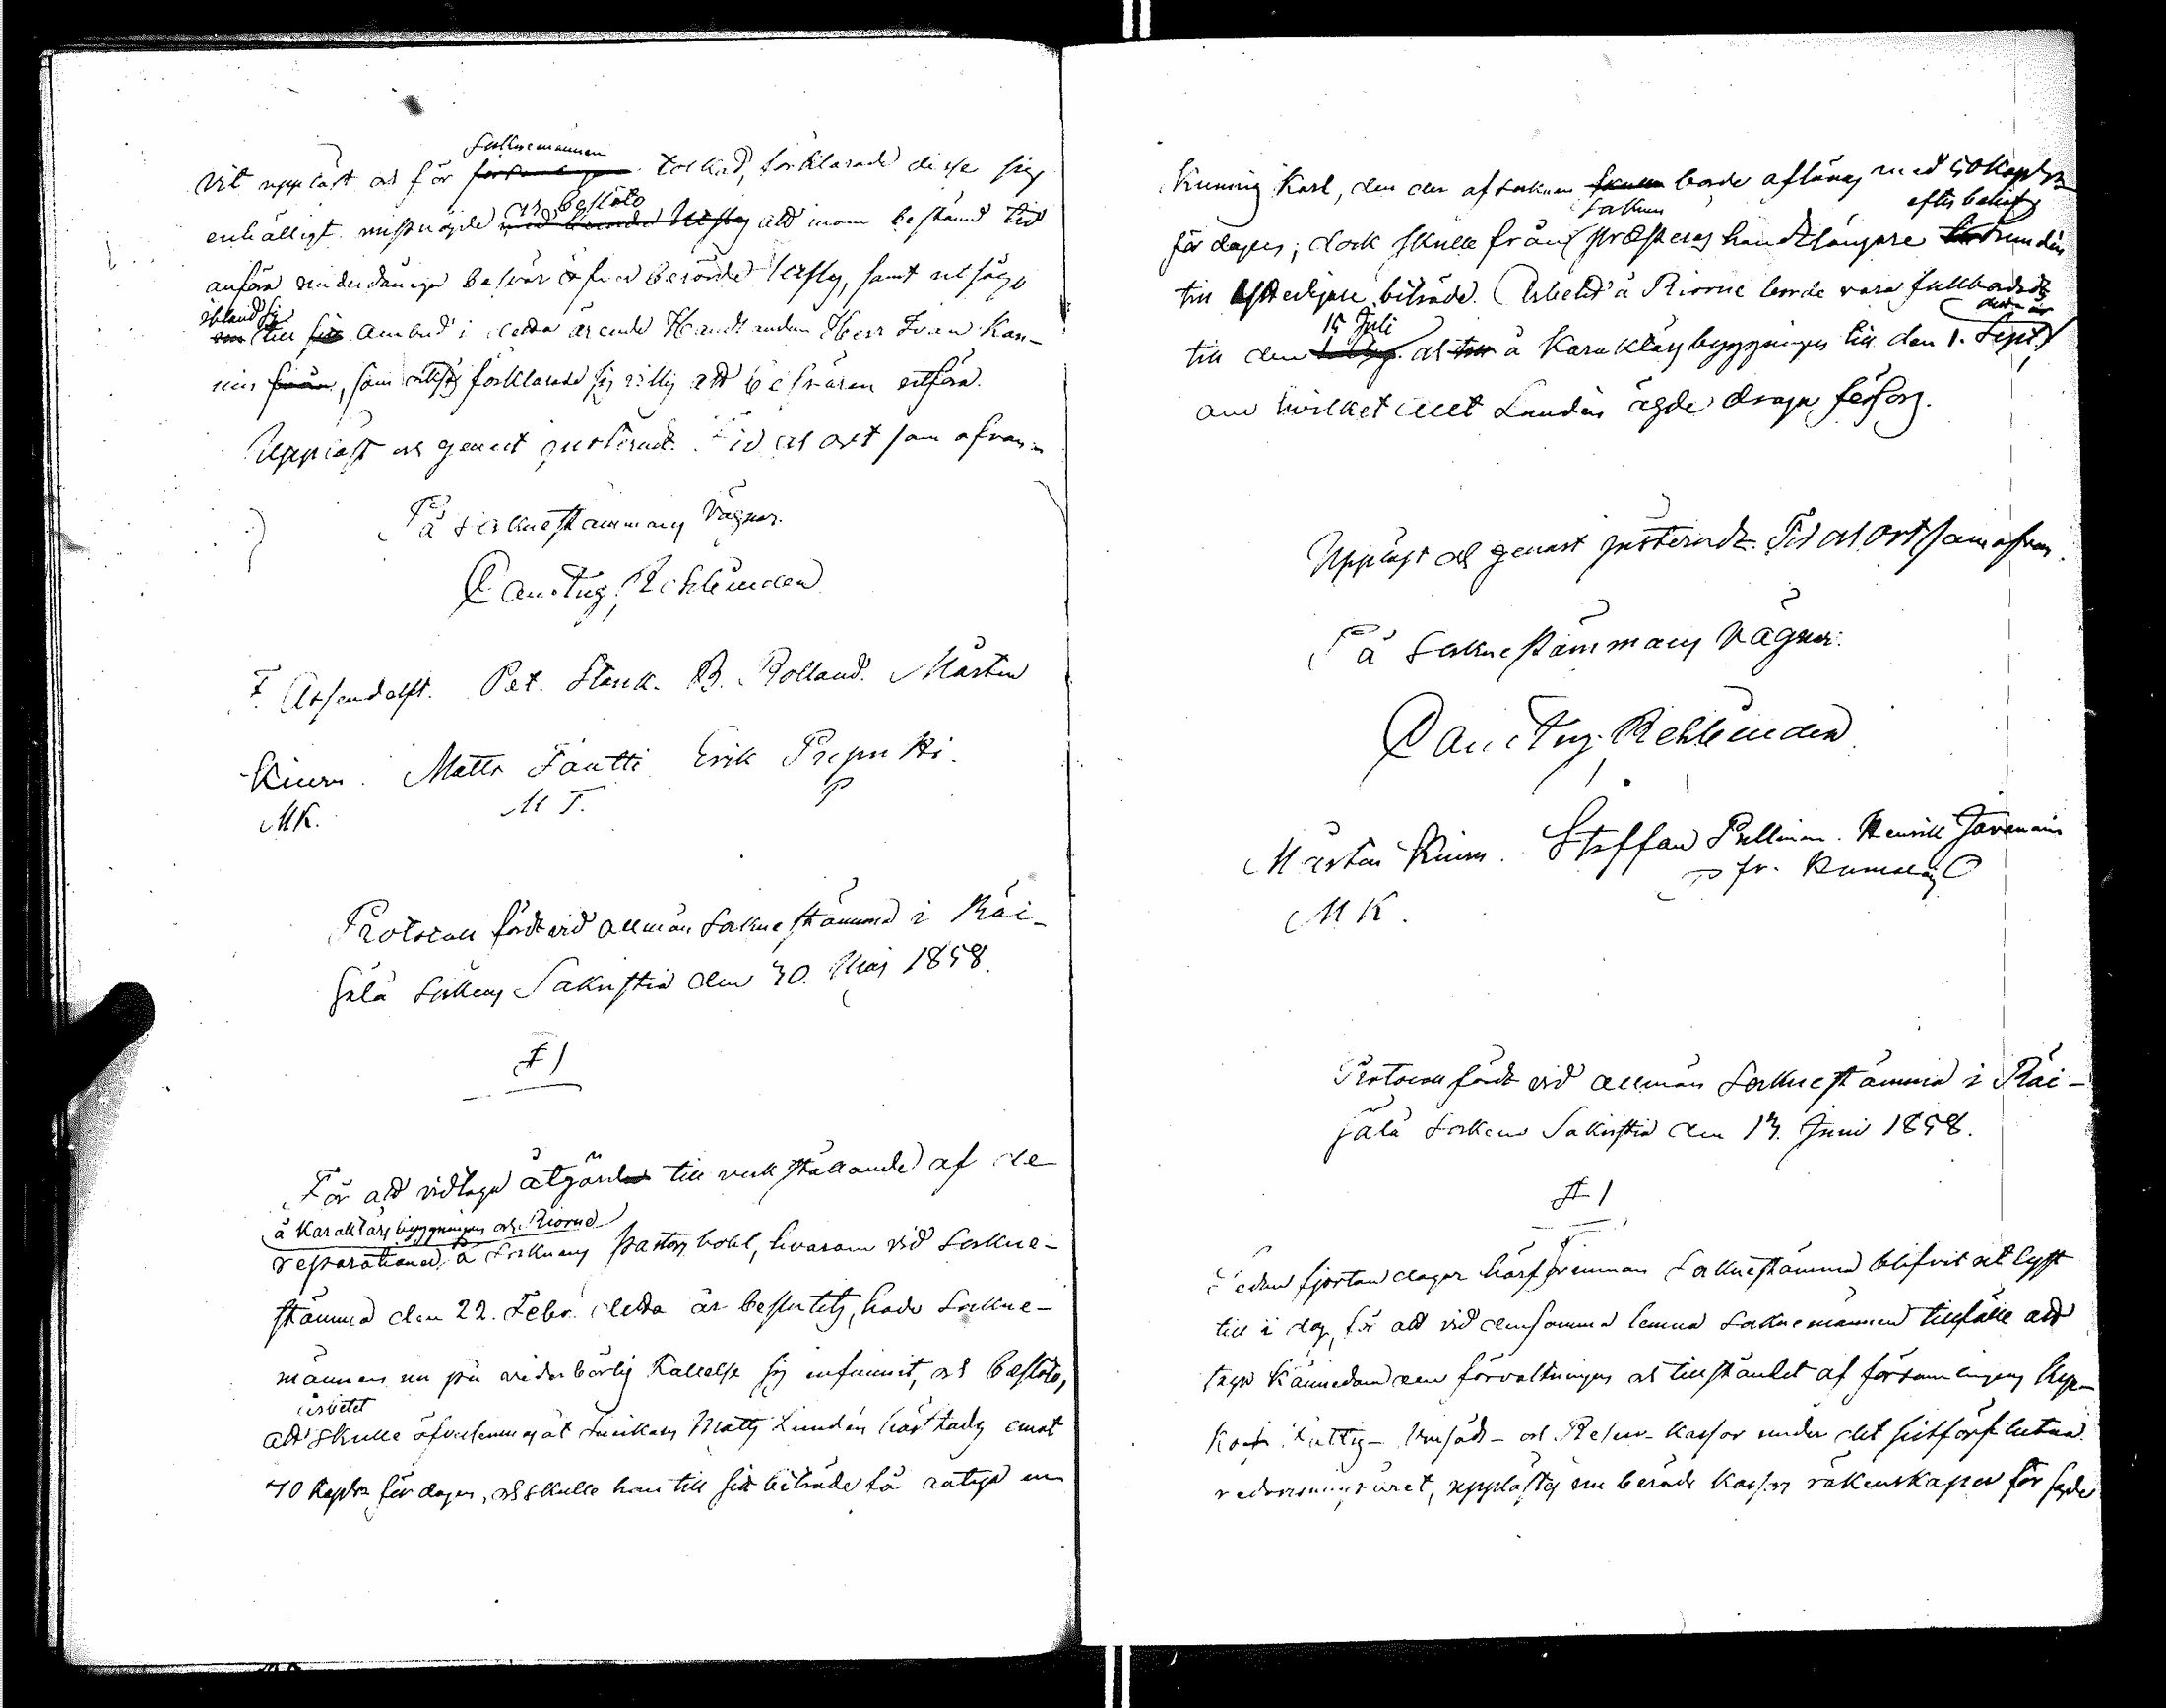 vit uppläst och för Socknemännen tolkad, förklarade desse sig
enhälligt missnöjde och beslöto att inom bestämd tid
anföra underdåniga besvär öfver berörde Utslag, samt utsågo
ibland sig till Ambud i detta ärende Handlanden Herr Iwan Kan-
nin, som förklarade sig villig att besvären utföra.
Uppläst och genast justeradt. Tid och ort som ofvan.
På Socknestämmans vägnar.
F. Assendelft. Pet. Stenk. B. Rolland. Mårten
Kiuru. Matts Tantti Erik Peputti.
MK. M T. P
Protocoll fördt vid allmän Sockne stämma i Räi-
sälä Sockens Sakristia den 30. Maj 1858.
§ 1
För att vidtaga åtgärd till verkställande af de
å Karaktärsbyggningen och Riorne
reparationer å Socknens Pastorsbohl, hvarom vid Sockne-
stämma den 22. Febr. detta år beslutits, hade Sockne-
männen nu på vederbörlig kallelse sig infunnit, och beslöto,
arbetet
att skulle öfverlemnas åt Snickaren Matts Lundén härstädes emot
70 Kop. för dagen, och skulle han till sitt biträde få antaga en
kunnig Karl, den der af Socknen borde aflönas med 50 Kop.
för dagen; dock skulle från Socknen presteras handtlangare efter behof
till ytterligare biträde. Arbetet å Riorne borde vara fullbordadt
till den 15 Juli och å Karaktärsbyggningen till den 1. Sept. detta år
om hvilket allt Lundén ägde draga försorg.
Uppläst och genast justeradt. Tid och ort som ofvan.
På Sockne stämmans vägnar:
Mårten Kiuru. Staffan Pullinen. Henrik Javanain
MK. P fr.
Protocoll fördt vid allmän Socknestämma i Räi-
sälä Sockens Sakristia den 13. Juni 1858.
§ 1
Sedan fjorton dagar härförinnan Socknestämma blifvit utlyst
till i dag, för att vid densamma lemna Socknemännen tillfälle att
taga kännedom om förvaltningen och tillståndet af församlingens Kyr-
ko- Fattig- och Reserv-Kassor under det sistförflutna
redovisningsåret, upplästes nu berörde Kassors räkenskaper för sagde